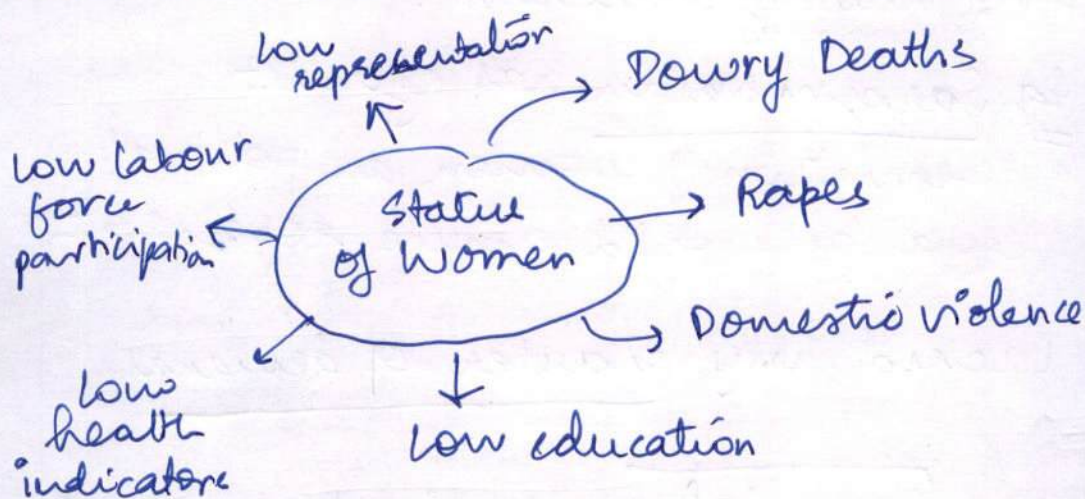 Low
representation
Dowry Deaths
Low labour
force
participation
Status
of Women
Rapes
Domestic violence
Low
health
indicators
Low education